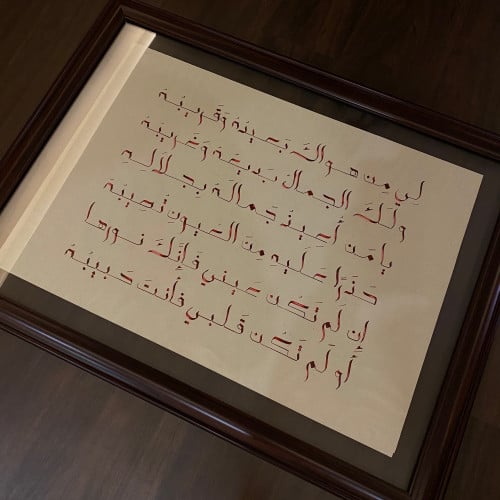 لِي مِن هواكَ بَعِيدَهُ وَقَرِيبَهُ
وَلَكَ الجمالُ بَدِيعَهُ وَغَرِيبَهُ
يا مَن أُعِيذُ جَمالَهُ بِجَلالِهِ
حَذَرًا عَلَيهِ مِنَ العيونِ تُصِيبَهُ
إِن لَم تَكُن عيني فَإِنَّكَ نورها
أَو لَم تَكُن قَلبي فَأَنتَ حَبِيبَهُ